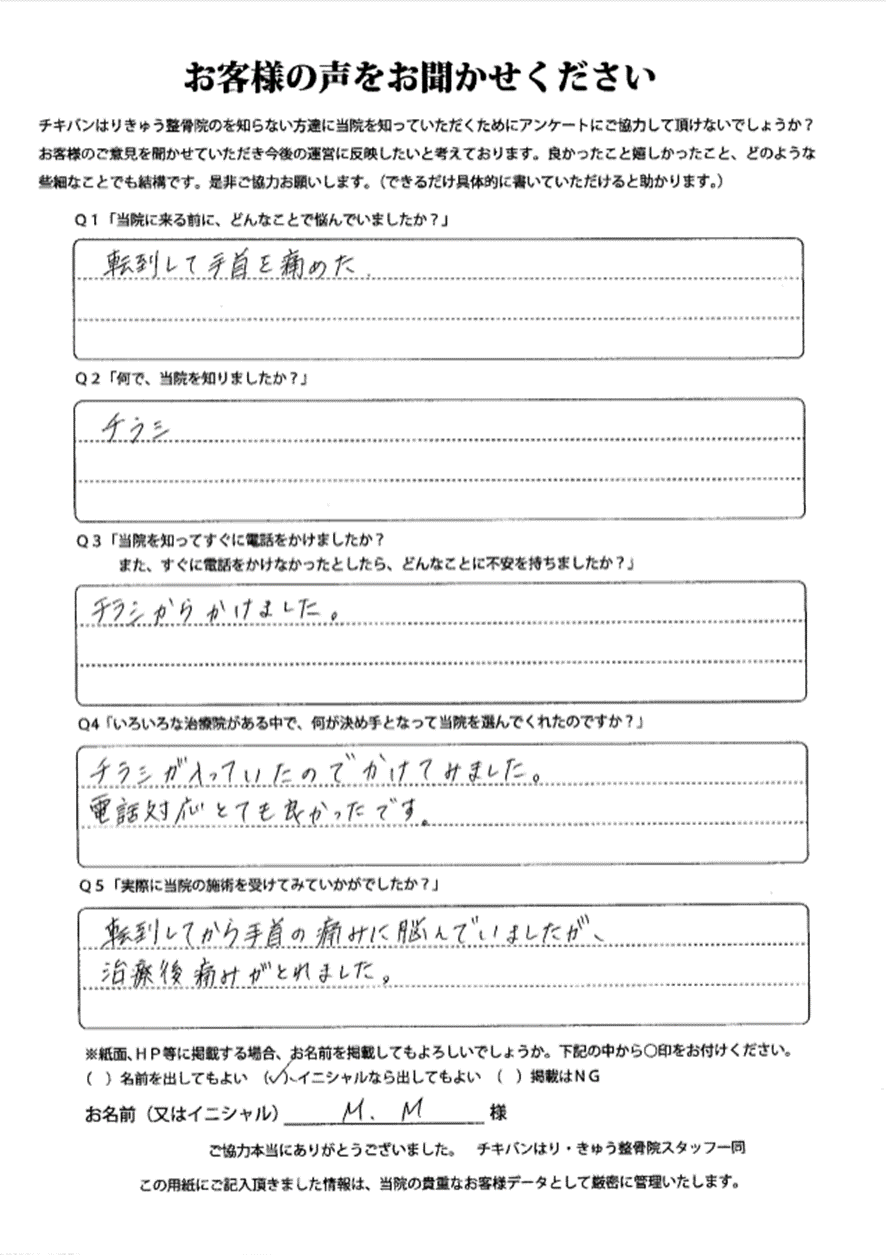 お客様の声をお聞かせください
チキバンはりきゅう整骨院のを知らない方達に当院を知っていただくためにアンケートにご協力して頂けないでしょうか？
お客様のご意見を聞かせていただき今後の運営に反映したいと考えております。良かったこと嬉しかったこと、どのような
些細なことでも結構です。是非ご協力お願いします。（できるだけ具体的に書いていただけると助かります。）
Ｑ１「当院に来る前に、どんなことで悩んでいましたか？」
転到して手首を痛めた.
Ｑ２「何で、当院を知りましたか？」
チラシ
Ｑ３「当院を知ってすぐに電話をかけましたか？
また、すぐに電話をかけなかったとしたら、どんなことに不安を持ちましたか？」
チラシからかけました。
Ｑ4「いろいろな治療院がある中で、何が決め手となって当院を選んでくれたのですか？」
チラシが入っていたのでかけてみました。
電話対応とても良かったです。
Ｑ５「実際に当院の施術を受けてみていかがでしたか？」
転到してから手首の痛みに脳んでいましたが、
治療後痛みがとれました。
※紙面、ＨＰ等に掲載する場合、お名前を掲載してもよろしいでしょうか。下記の中から〇印をお付けください。
（ ）名前を出してもよい （✓）イニシャルなら出してもよい （ ）掲載はＮＧ
お名前（又はイニシャル） M. M 様
ご協力本当にありがとうございました。 チキバンはり・きゅう整骨院スタッフ一同
この用紙にご記入頂きました情報は、当院の貴重なお客様データとして厳密に管理いたします。